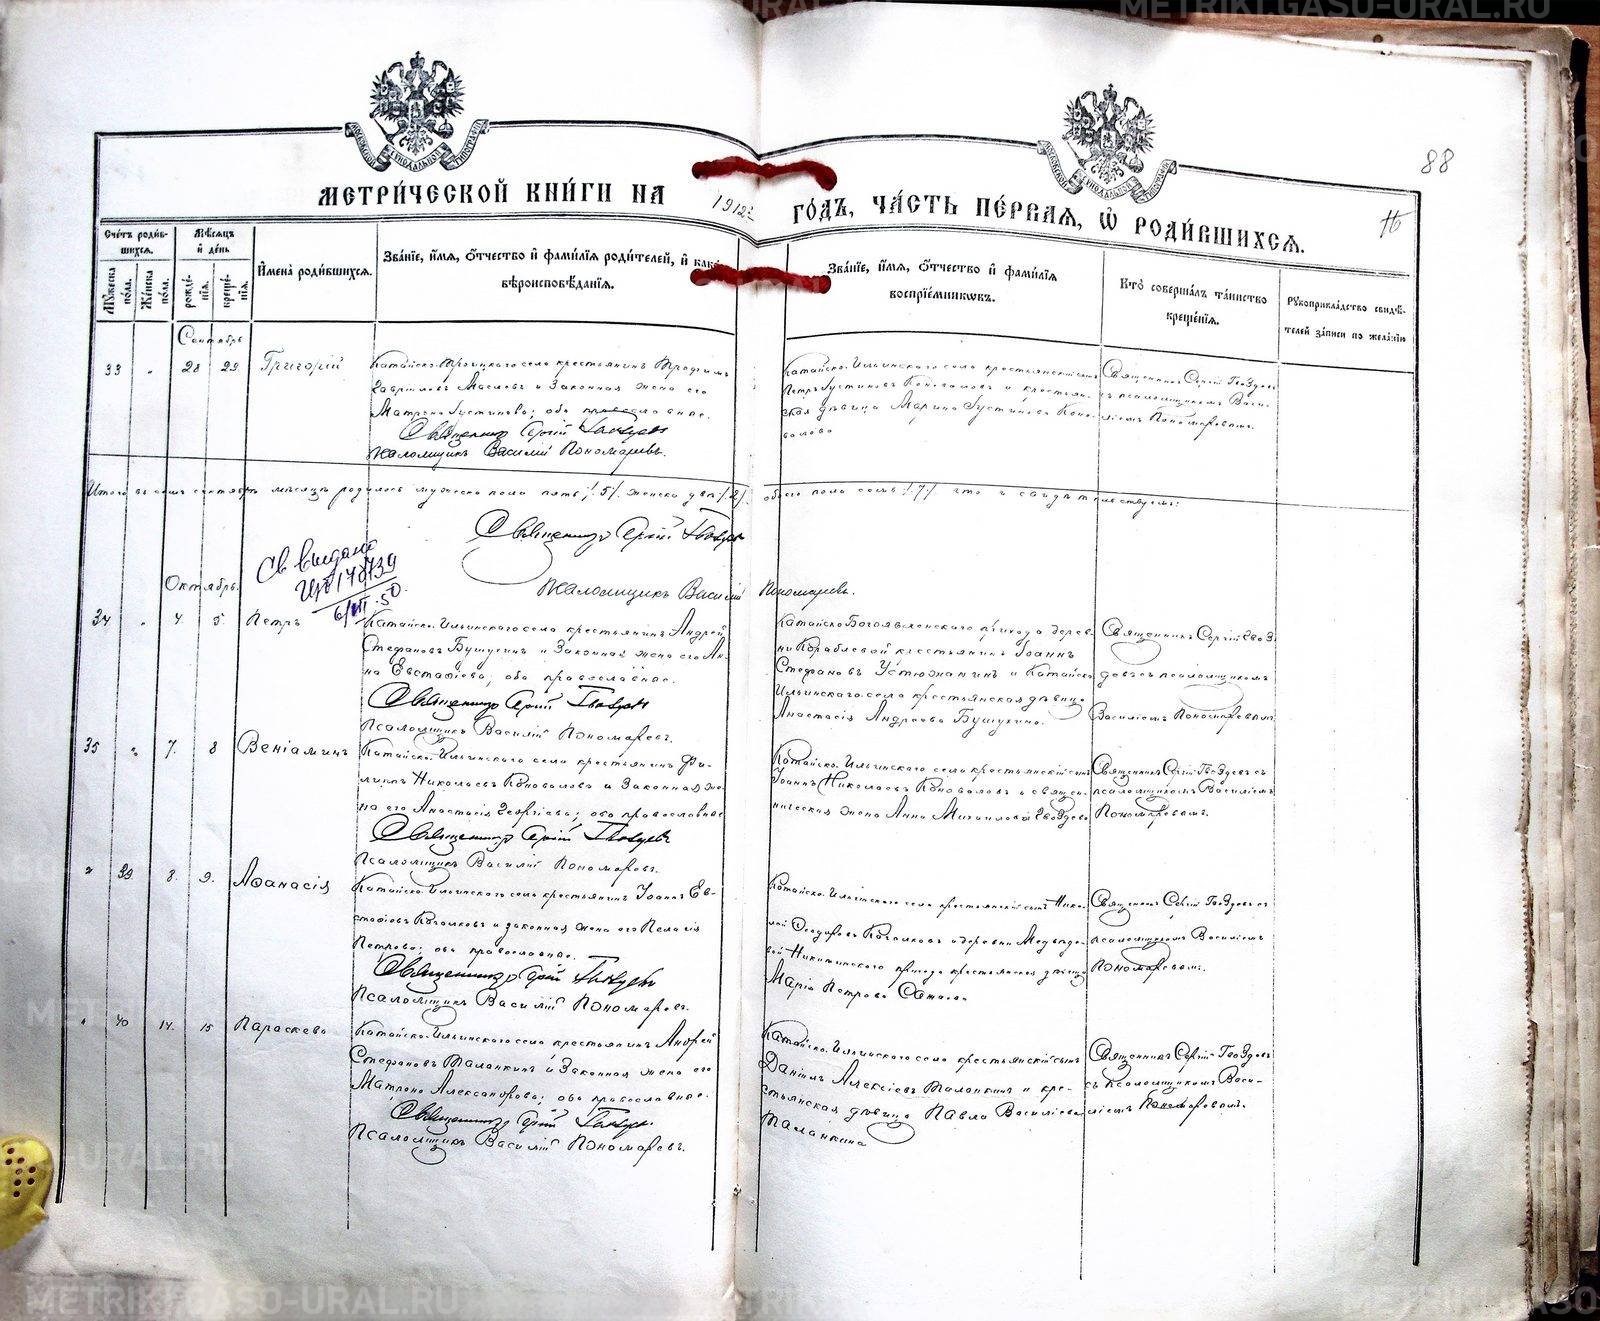 METRIKI.GASO-URAL.RU
88
МЕТРИ́ЧЕСКОЙ КНИ́ГИ НА 1912 ГО́ДЪ, ЧА́СТЬ ПЕ́РВАЯ, Ѡ҆ РОДИ́ВШИХСЯ.
Сче́тъ роди́вшихся.
Мѣ́сяцъ и҆ де́нь
Мꙋ́жеска по́ла.
Же́нска по́ла.
рожде́нїя.
креще́нїя.
И҆мена̀ роди́вшихся.
Зва́нїе, и҆́мя, ѻ҆́тчество и҆ фами́лїя роди́телей, и҆ како́
вѣроисповѣ́данїя.
Зва́нїе, и҆́мя, ѻ҆́тчество и҆ фами́лїя
воспрїе́мниковъ.
Кто̀ соверша́лъ та́инство
креще́нїя.
Рꙋкоприкла́дство свидѣ́-
телей за́писи по жела́нїю
Сентябрь
33 " 28 29 Григорій
Катайско-Троицкаго села крестьянинъ Трофимъ
Гавріиловъ Масловъ и законная жена его
Матрона Іустинова; оба православные.
Священникъ Сергій Гвоздевъ
Псаломщикъ Василій Пономаревъ.
Катайско-Ильинскаго села крестьянскій сынъ
Петръ Іустиновъ Коновалов и крестьян-
ская дѣвица Марина Іустинова Коно-
валова
Священникъ Сергій Гвоздев
съ псаломщикомъ Васи-
ліемъ Пономаревымъ.
Итого въ семъ сентябрѣ мѣсяцѣ родилось мужеска пола пять /5/ женска два /2/ обоего пола семь /7/ что и свидѣтельствуемъ:
Священникъ Сергій Гвоздевъ
Псаломщикъ Василій Пономаревъ.
Св выдано
178739
Октябрь.
34 " 4. 5. Петръ
Катайско-Ильинскаго села крестьянинъ Андрей
Стефановъ Бушухин и законная жена его Ан-
на Евстафіева; оба православные.
Священникъ Сергій Гвоздевъ
Псаломщикъ Василій Пономаревъ.
Катайско-Богоявленскаго прихода дерев-
ни Кораблевой крестьянинъ Іоаннъ
Стефановъ Устюжанинъ и Катайско
Ильинскаго села крестьянская дѣвица
Анастасія Андреева Бушухина.
Священникъ Сергій Гвоз-
девъ съ псаломщикомъ
Василіемъ Пономаревымъ
35 " 7. 8 Веніаминъ
Катайско-Ильинскаго села крестьянинъ Фи-
липъ Николаевъ Коновалов и законная же-
на его Анастасія Георгіева; оба православные
Священникъ Сергій Гвоздевъ
Псаломщикъ Василій Пономаревъ.
Катайско-Ильинскаго села крестьянскій сынъ
Іоаннъ Николаевъ Коновалов и священ-
ническая жена Анна Михайловна Гвоздева
Священникъ Сергій Гвоздевъ съ
псаломщикомъ Василіемъ
Пономаревымъ.
" 39. 8. 9. Аѳанасія
Катайско-Ильинскаго села крестьянинъ Іоаннъ Ев-
стафіевъ и законная жена его Пелагія
Петрова; оба православные.
Священникъ Сергій Гвоздевъ
Псаломщикъ Василій Пономаревъ.
Катайско-Ильинскаго села крестьянскій сынъ Нико-
лай Ѳеодоровъ и деревни Медвѣде-
вой Никитинскаго прихода крестьянская дѣвица
Марія Петрова
Священникъ Сергій Гвоздевъ съ
псаломщикомъ Василіемъ
Пономаревымъ.
" 40 14. 15 Параскева
Катайско-Ильинскаго села крестьянинъ Андрей
Стефановъ Таланкинъ и законная жена его
Матрона Александрова; оба православные.
Священникъ Сергій Гвоздевъ
Псаломщикъ Василій Пономаревъ.
Катайско-Ильинскаго села крестьянскій сынъ
Даніилъ Алексіевъ Таланкинъ и кре-
стьянская дѣвица Павла Василіева
Таланкина
Священникъ Сергій Гвоздевъ
съ псаломщикомъ Васи-
ліемъ Пономаревымъ.
METRIKI.GASO-URAL.RU